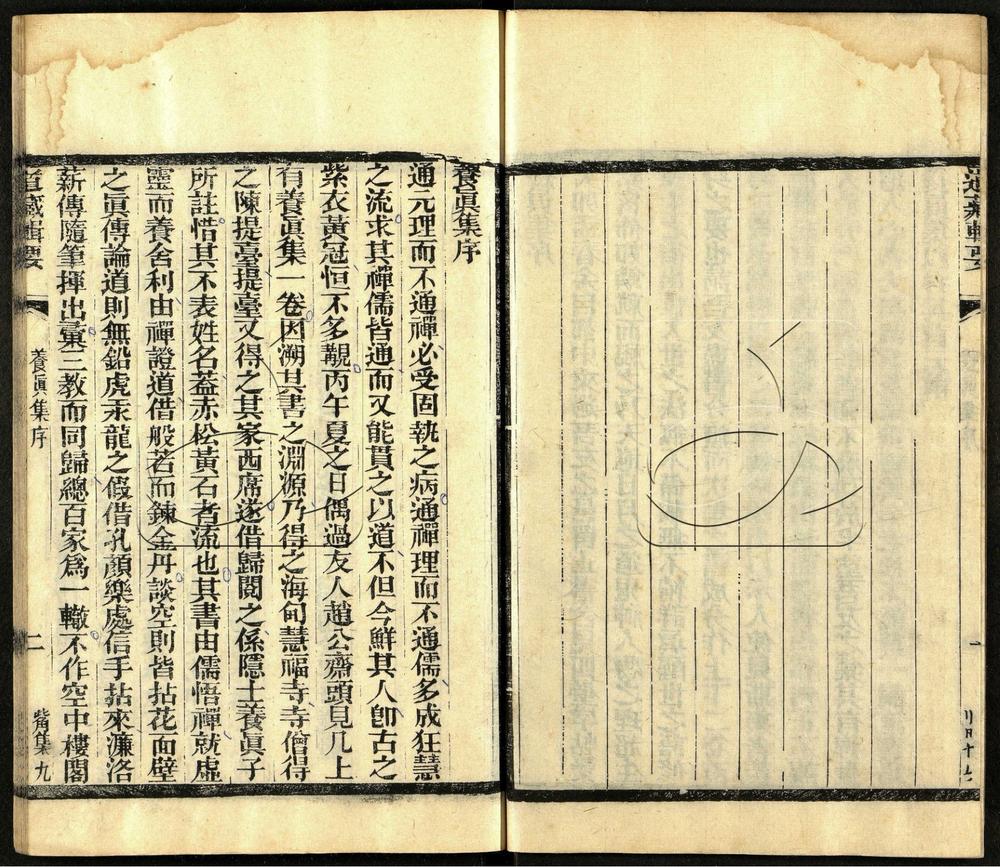 道藏輯要
一
養眞集序
通元理而不通禪必受固執之病通禪理而不通儒多成狂慧
之流求其禪儒皆通而又能貫之以道不但今鮮其人卽古之
紫衣黃冠恒不多覯丙午夏之日偶過友人趙公齋頭見几上
有養眞集一卷因溯其書之淵源乃得之海甸慧福寺寺僧得
之陳提臺提臺又得之其家西席遂借歸閱之係隱士養眞子
所註惜其不表姓名葢赤松黃石者流也其書由儒悟禪就虛
靈而養舍利由禪證道借般若而鍊金丹談空則皆拈花面壁
之眞傳論道則無鉛虎汞龍之假借孔顏樂處信手拈來濂洛
薪傳隨筆揮出彙三教而同歸總百家爲一轍不作空中樓閣
道藏輯要
養眞集序
二
觜集九